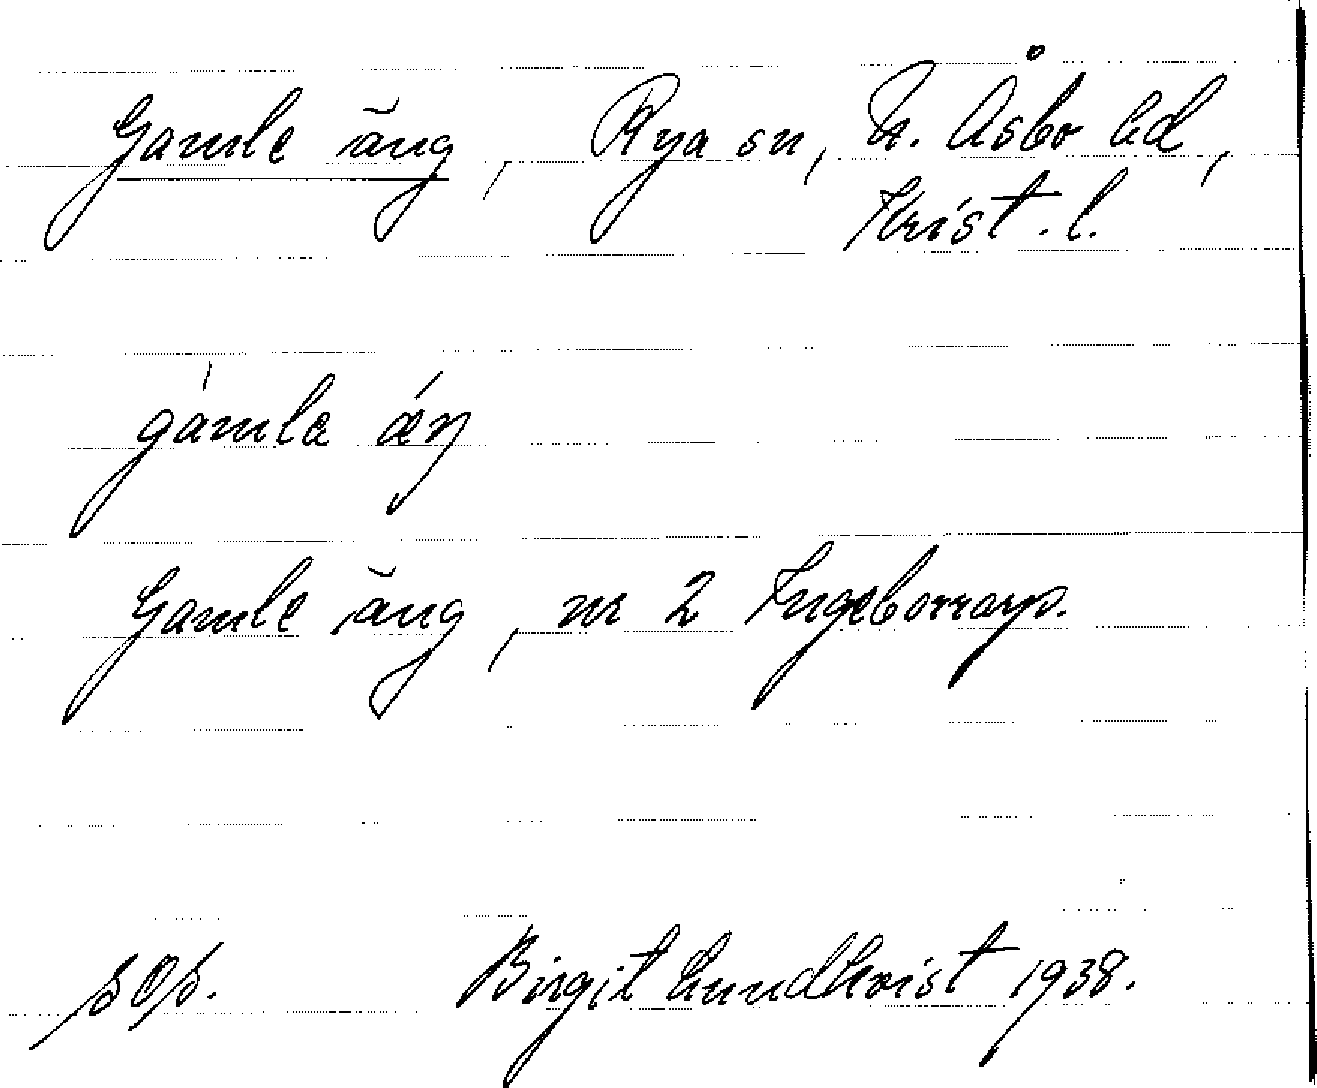 Gamle äng, Rya sn, N. Åsbo hd,
Krist. l.
gámla ǽŋ
Gamle äng, nr 2 Ingeborrarp.
Birgit Lundkvist 1938.